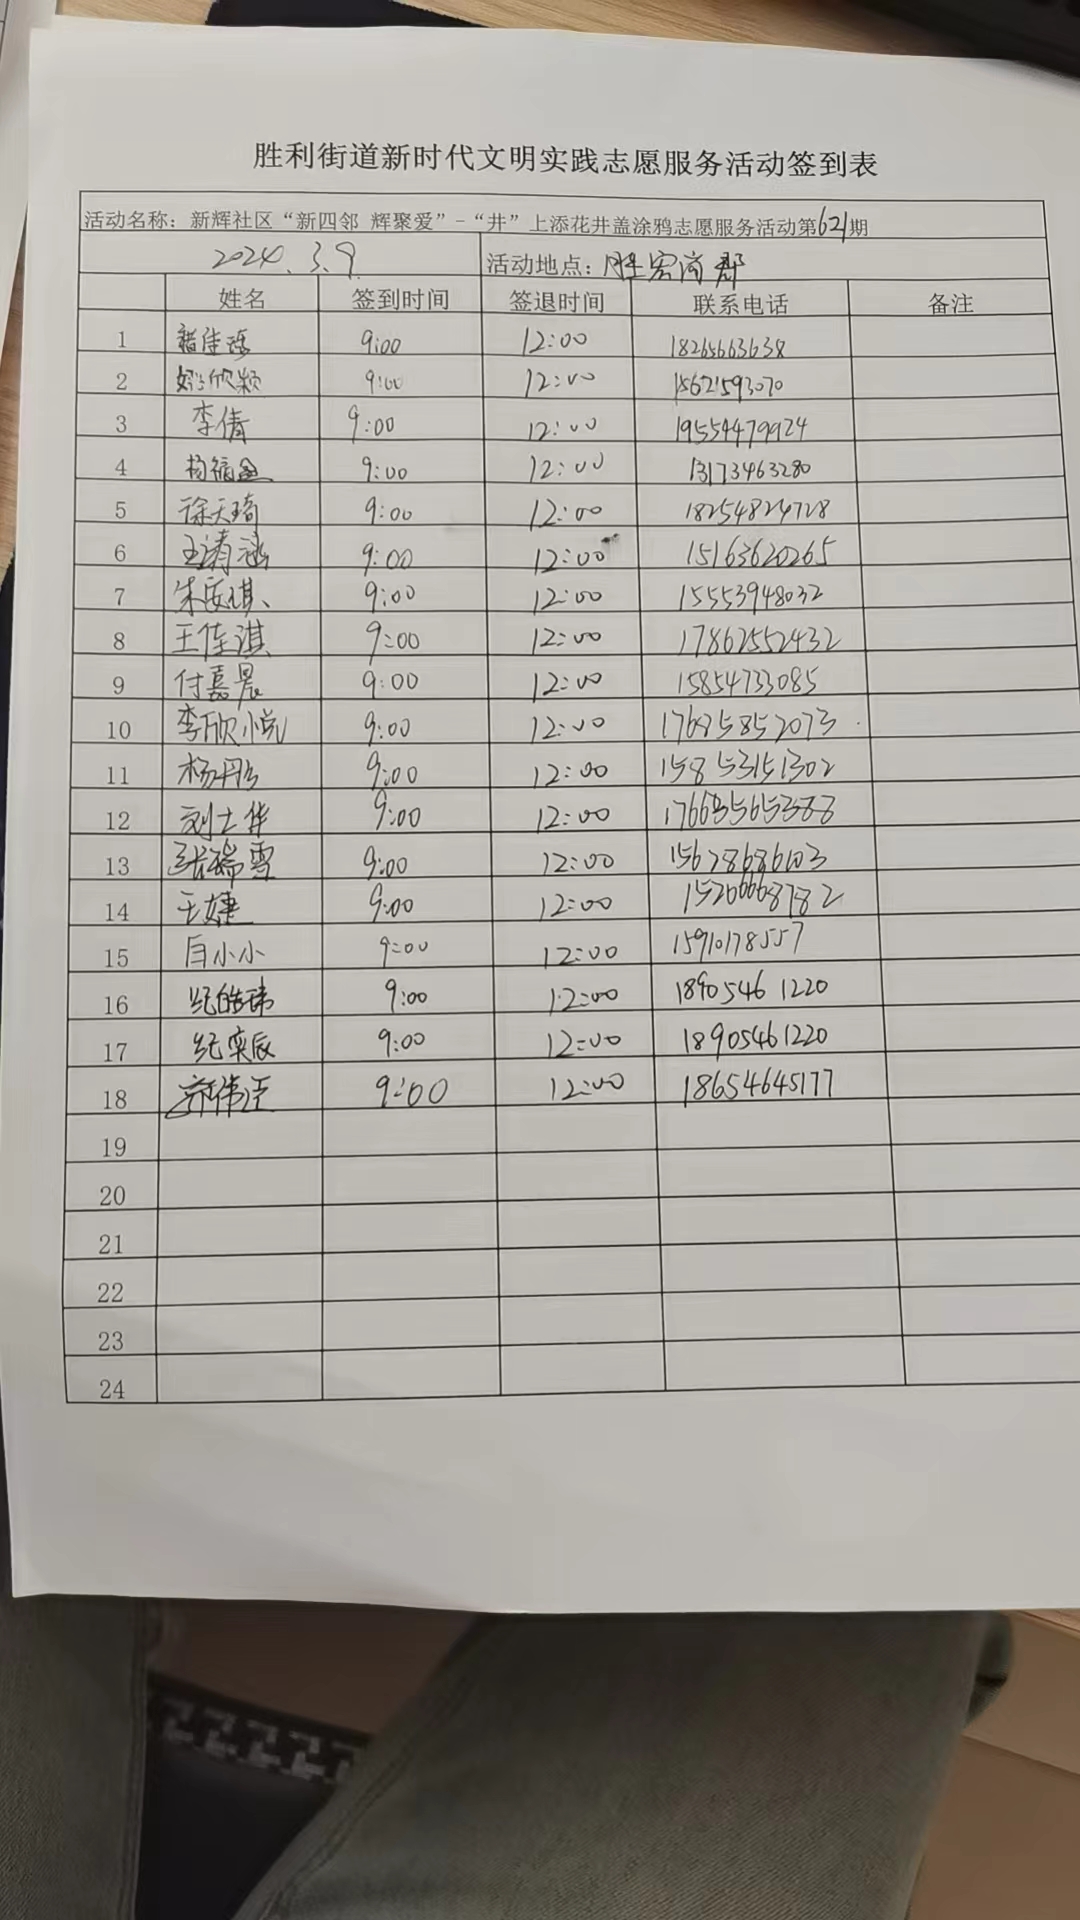 胜利街道新时代文明实践志愿服务活动签到表
活动名称：新辉社区“新四邻 辉聚爱”-“井”上添花井盖涂鸦志愿服务活动第621期
2024.3.9 活动地点：胜宏尚郡
姓名 签到时间 签退时间 联系电话 备注
1 9:00 12:00 18265663638
2 欣颖 9:00 12:00 15621593070
3 李倩 9:00 12:00 19554479924
4 杨福 9:00 12:00 13173463280
5 徐天琦 9:00 12:00 18254824728
6 王涛涵 9:00 12:00 15163620265
7 朱安琪 9:00 12:00 15553948032
8 王佳淇 9:00 12:00 17862552432
9 付嘉晨 9:00 12:00 15854733085
10 李欣悦 9:00 12:00 17685852073
11 杨彤 9:00 12:00 15853151302
12 刘士华 9:00 12:00
13 张瑞雪 9:00 12:00 15628686103
14 王婕 9:00 12:00 15206668782
15 小小 9:00 12:00 15910178557
16 纪皓玮 9:00 12:00 18905461220
17 纪奕辰 9:00 12:00 18905461220
18 9:00 12:00 18654645177
19
20
21
22
23
24